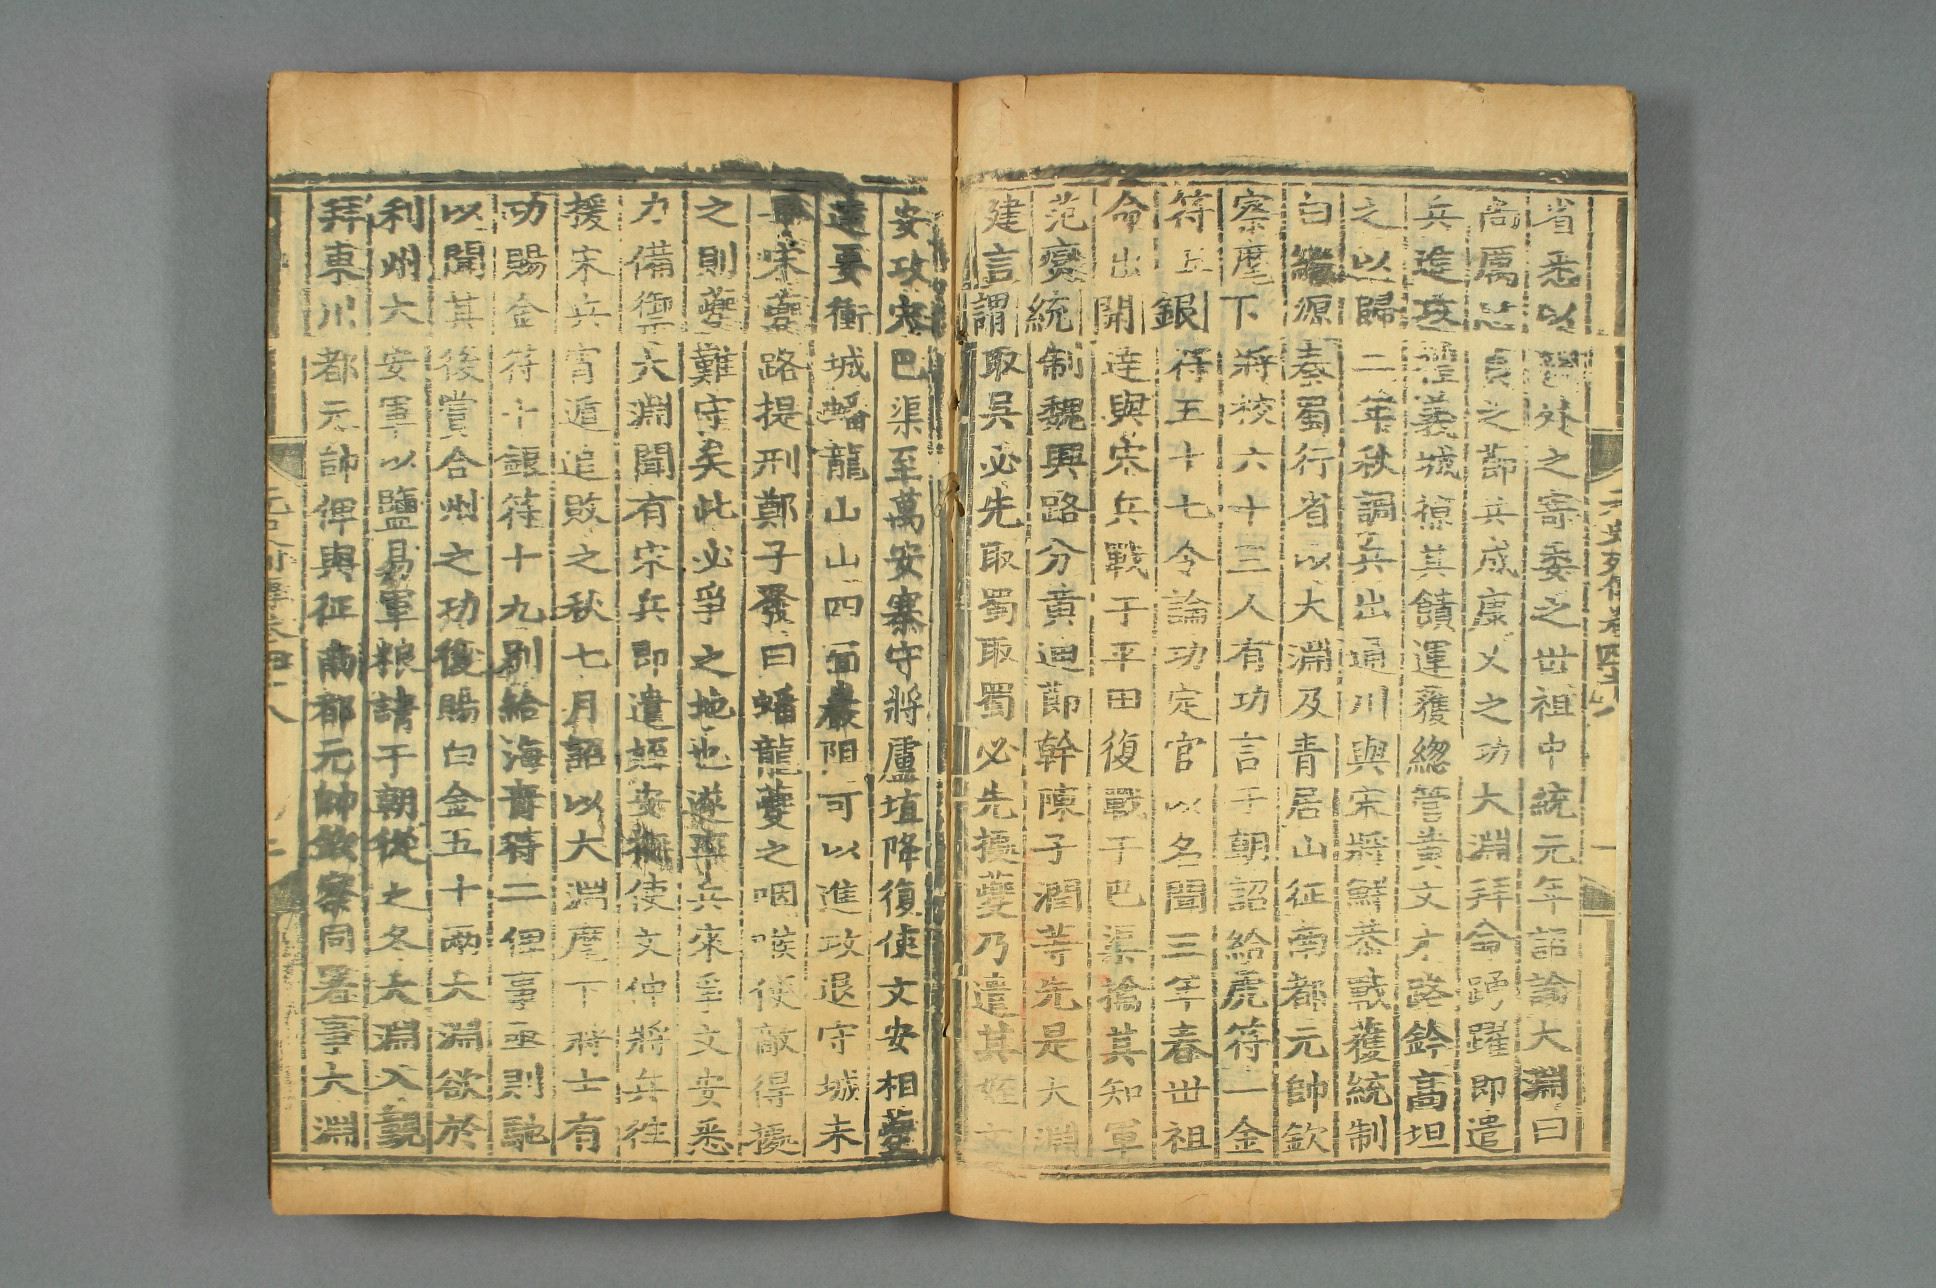 省悉以閫外之寄委之世祖中統元年詔諭大淵曰
尚厲忠貞之節共成康乂之功大淵拜命踴躍即遣
兵進攻禮義城掠其饋運獲總管黃文才路鈐高坦
之以歸二年秋調兵出通川與宋將鮮恭戰獲統制
白繼源秦蜀行省以大淵及青居山征南都元帥欽
察麾下將校六十三人有功言于朝詔給虎符一金
符五銀符五十七令論功定官以名聞三年春世祖
命出開達與宋兵戰于平田復戰于巴渠擒其知軍
范燮統制魏興路分黃迪節幹陳子潤等先是大淵
建言謂取吳必先取蜀取蜀必先據夔乃遣其姪文
安攻宋巴渠至萬安寨守將盧埴降復使文安相夔
達要衝城蟠龍山山四面巖阻可以進攻退守城未
畢宋夔路提刑鄭子發曰蟠龍夔之咽喉使敵得據
之則夔難守矣此必爭之地也遂率兵來爭文安悉
力備禦大淵聞有宋兵即遣姪安撫使文仲將兵往
援宋兵宵遁追敗之秋七月詔以大淵麾下將士有
功賜金符十銀符十九別給海青符二俾事亟則馳
以聞其後賞合州之功復賜白金五十兩大淵欲於
利州大安軍以鹽易軍糧請于朝從之冬大淵入覲
拜東川都元帥俾與征南都元帥欽察同署事大淵